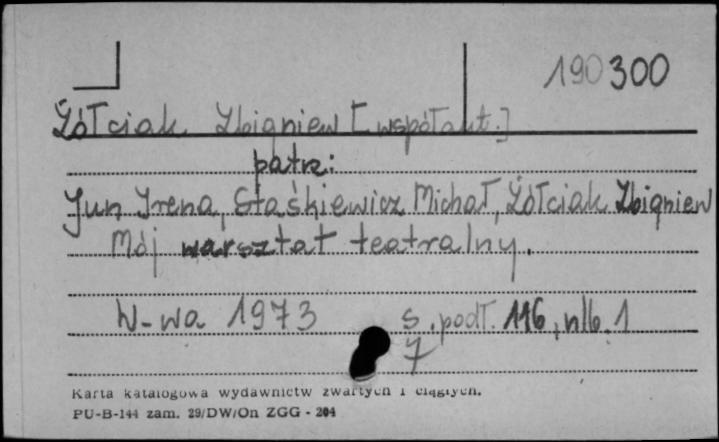 190300
Żółciak Zbigniew [współaut.]
patrz:
Jun Irena, Staśkiewicz Michał, Żółciak Zbigniew
Mój warsztat teatralny.
W-wa 1973 s. podł. 116, nlb. 1
7
Karta katalogowa wydawnictw zwartych i ciągłych.
PU-B-144 zam. 29/DW/On ZGG - 204